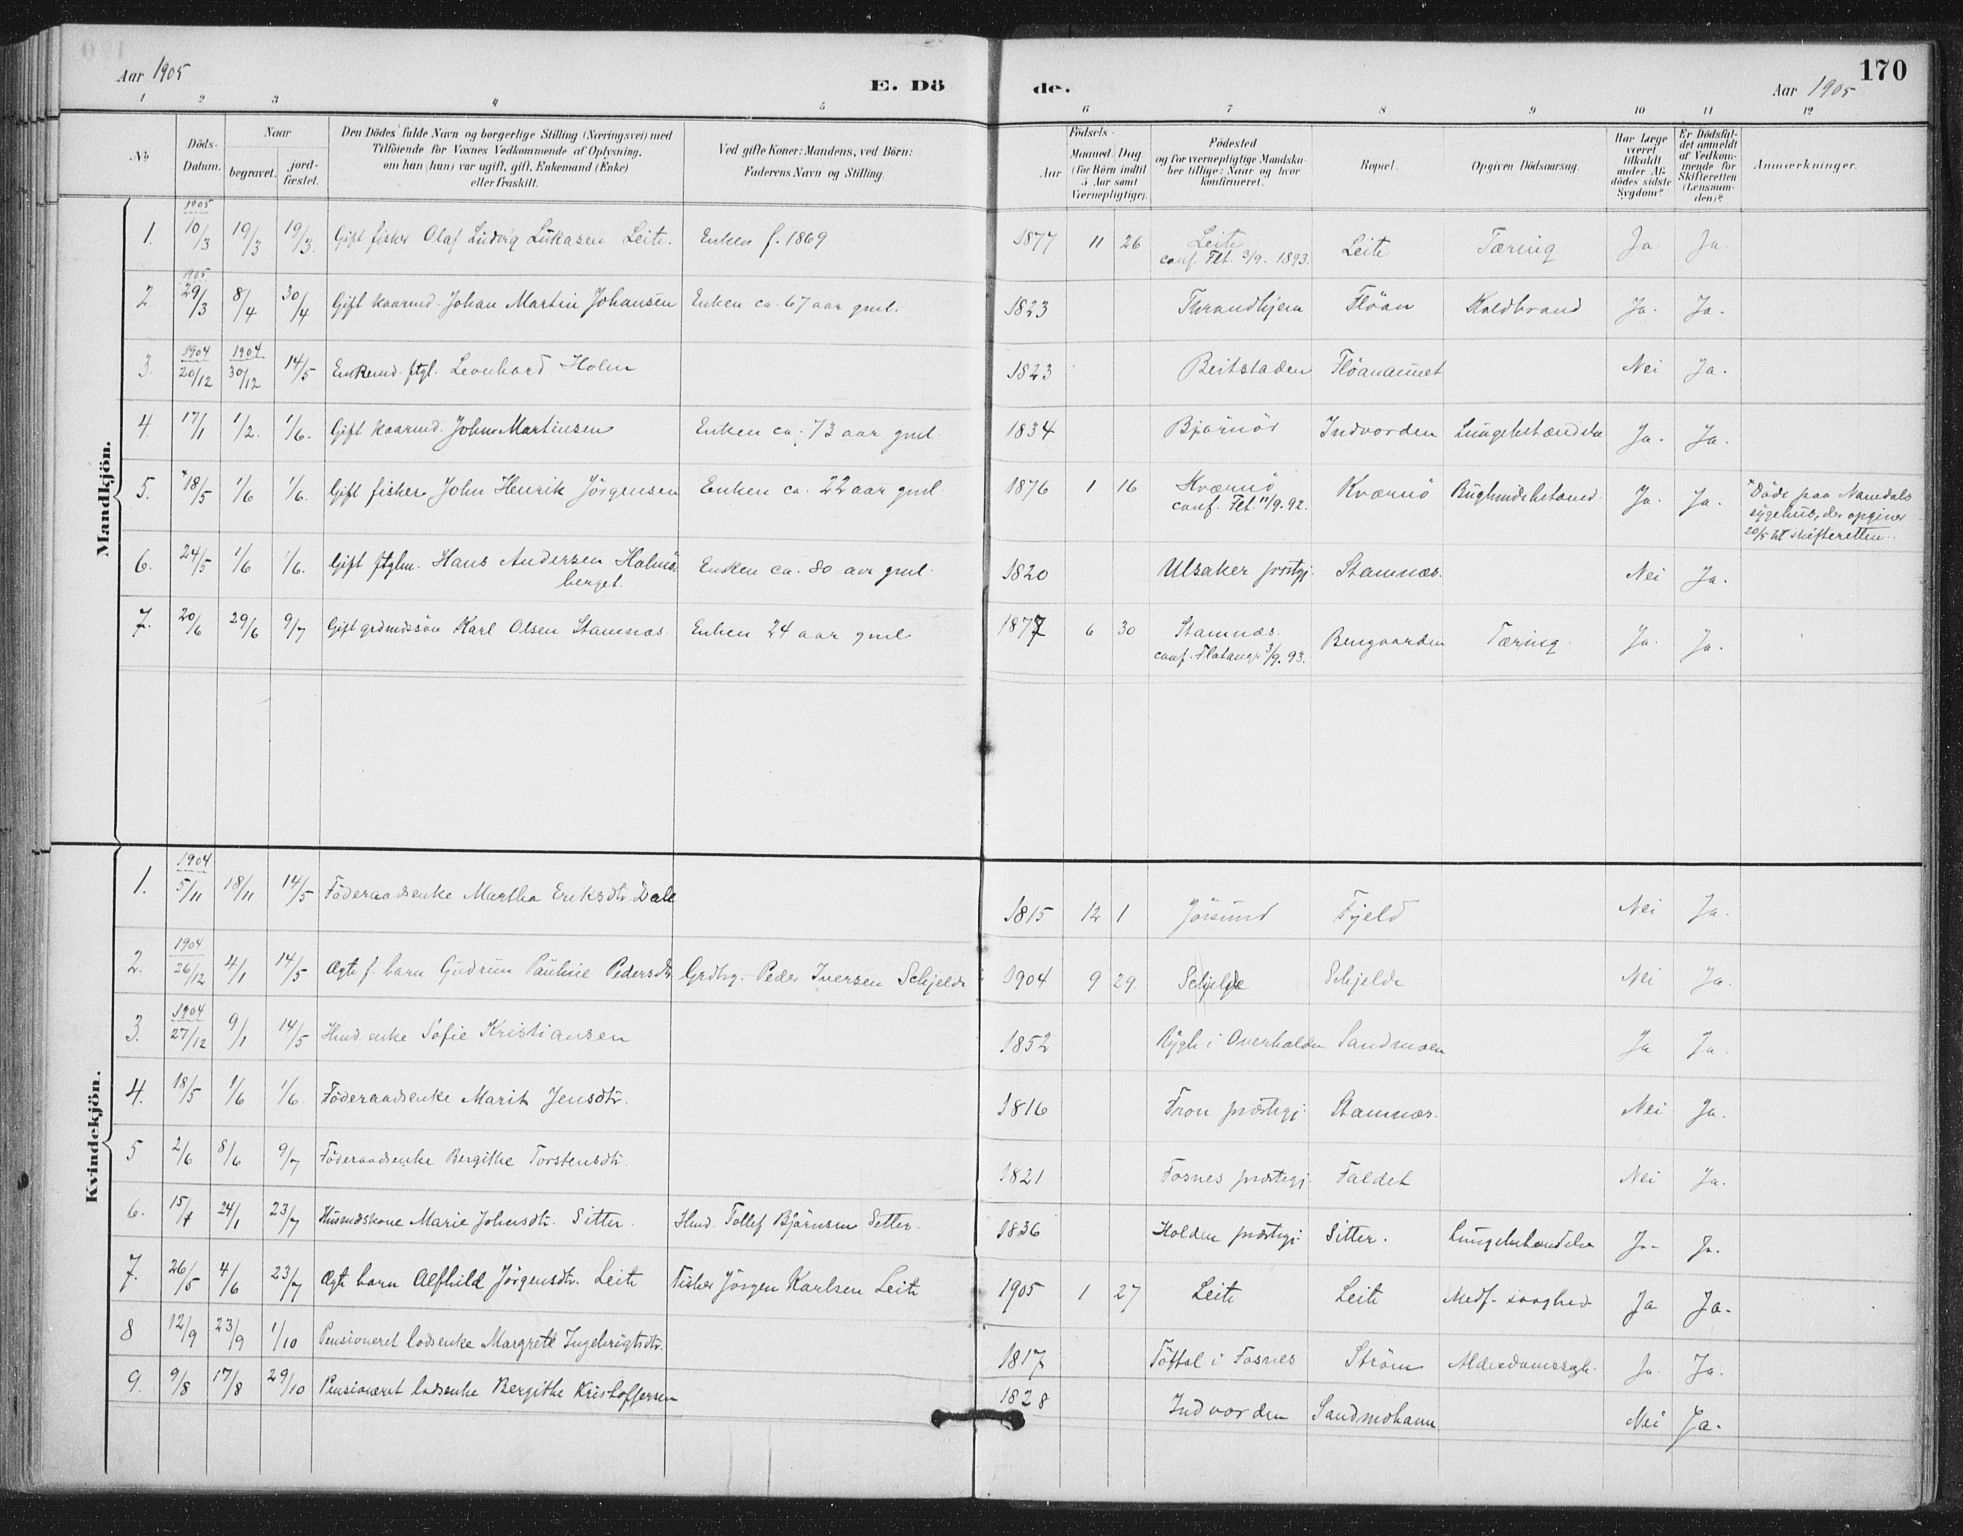 Aar 1905
E. Dö
de.
Aar 1905
170
1 2 3 4 5 6 7 8 9 10 11 12
No
Döds-
Datum.
Naar
begravet.
jord-
fæstet.
Den Dödes fulde Navn og borgerlige Stilling (Næringsvei) med
Tilföiende for Voxnes Vedkommende af Oplysning,
om han (hun) var ugift, gift, Enkemand (Enke)
eller fraskilt.
Ved gifte Koner: Mandens, ved Börn:
Faderens Navn og Stilling.
Födsels-
Aar
Maaned
Dag
(for Börn indtil
5 Aar samt
Værnepligtige).
Födested
og for værnepligtige Mandska-
ber tillige: Naar og hvor
konfirmeret.
Bopæl.
Opgiven Dödsaarsag.
Har Læge
været
tilkaldt
under Af-
dödes sidste
Sygdom?
Er Dödsfal-
det anmeldt
af Vedkom-
mende for
Skifteretten
(Lensman-
den)?
Anmærkninger.
Mandkjön.
1. 1905 10/3 19/3 19/3. Gift fisker Olaf Ludvig Lukasen Leite. Enken f. 1869 1877 11 26 Leite Leite Tæring Ja Ja.
conf. Flt. 3/9. 1893.
2. 1905 29/3 8/4 30/4 Gift kaarmd. Johan Martin Johansen Enken ca. 67 aar gml. 1823 Throndhjem Flöan Koldbrand Ja. Ja.
3. 1904 20/12 1904 30/12 14/5 Enkemd. ftgl. Leonhard Holm 1823 Beitstaden Flöanaunet Nei Ja.
4. 17/1 1/2. 1/6. Gift kaarmd. John Martinsen Enken ca. 73 aar gml. 1834 Bjørnör Indvorden Lungebetændelse Ja. Ja.
5. *18/5 1/6 1/6. Gift fisker John Henrik Jörgensen Enken ca. 22 aar gml. 1876 1 16 Kværnö Kværnö Bughindebetænd. Ja. Ja. *Döde paa Namdals
conf. Flt. 11/9. 92. sygehus, der opgiver
20/5 til skifteretten.
6. 24/5 1/6 1/6. Gift ftglm. Hans Andersen Holms- Enken ca. 80 aar gml. 1820 Ulsaker prstgj. Stamnæs. Nei Ja.
berget.
7. 20/6 29/6 9/7 Gift grdmdssön Karl Olsen Stamnæs. Enken 24 aar gml 1877 6 30 Stamnæs. Bergaarden Tæring. Ja. Ja.
conf. Flatanger 3/9. 93.
Kvindekjön.
1. 1904 5/11 18/11 14/5 Föderaadsenke Martha Eriksdtr. Dale 1815 12 1 Jösund Fjeld Nei Ja.
2. 1904 26/12 4/1 14/5 Ægte f. barn Gudrun Pauline Pedersdtr. Grdbg. Peder Iversen Schjelde 1904 9 29. Schjelde Schjelde Nei Ja.
3. 1904 27/12 9/1 14/5 Husmd. enke Sofie Kristiansen 1852 Rygh i Overhalden Sandmoen Ja Ja.
4. 18/5 1/6 1/6 Föderaadsenke Marit Jensdtr. 1816 Fron præstegj. Stamnæs. Nei Ja.
5 2/6 8/6 9/7 Föderaadsenke Bergithe Torstensdtr. 1821 Fosnes præstegj. Faldet Nei Ja.
6. 15/1 24/1 23/7 Husmdskone Marie Johnsdtr. Sitter. Husmd. Tollef Björnsen Sitter. 1836 Holden præstegj. Sitter. Lungebetændelse Ja Ja.
7. 26/5 4/6 23/7 Ægte barn Alfhild Jörgensdtr. Leite Fisker Jörgen Karlsen Leite 1905 1 27 Leite Leite Medf. svaghed Ja Ja.
8 12/9 23/9 1/10 Pensioneret lodsenke Margrete Ingebrigtsdtr. 1817 Töftal i Fosnes Ström Alderdomssvagh. Ja. Ja.
9. 9/8 17/8 29/10 Pensioneret lodsenke Bergithe Kristoffersen 1828 Indvorden Sandmohavn Nei Ja.